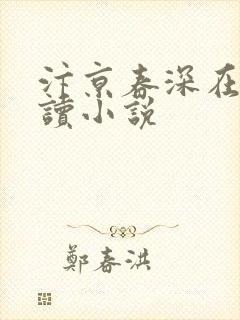 汴京春深在
讀小説
鄭春洪